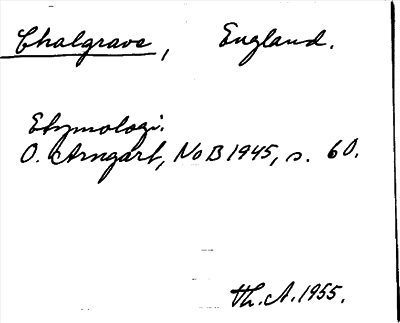 Chalgrave, England.
Etymologi.
O. Arngart, NoB 1945, s. 60.
Th. A. 1955.